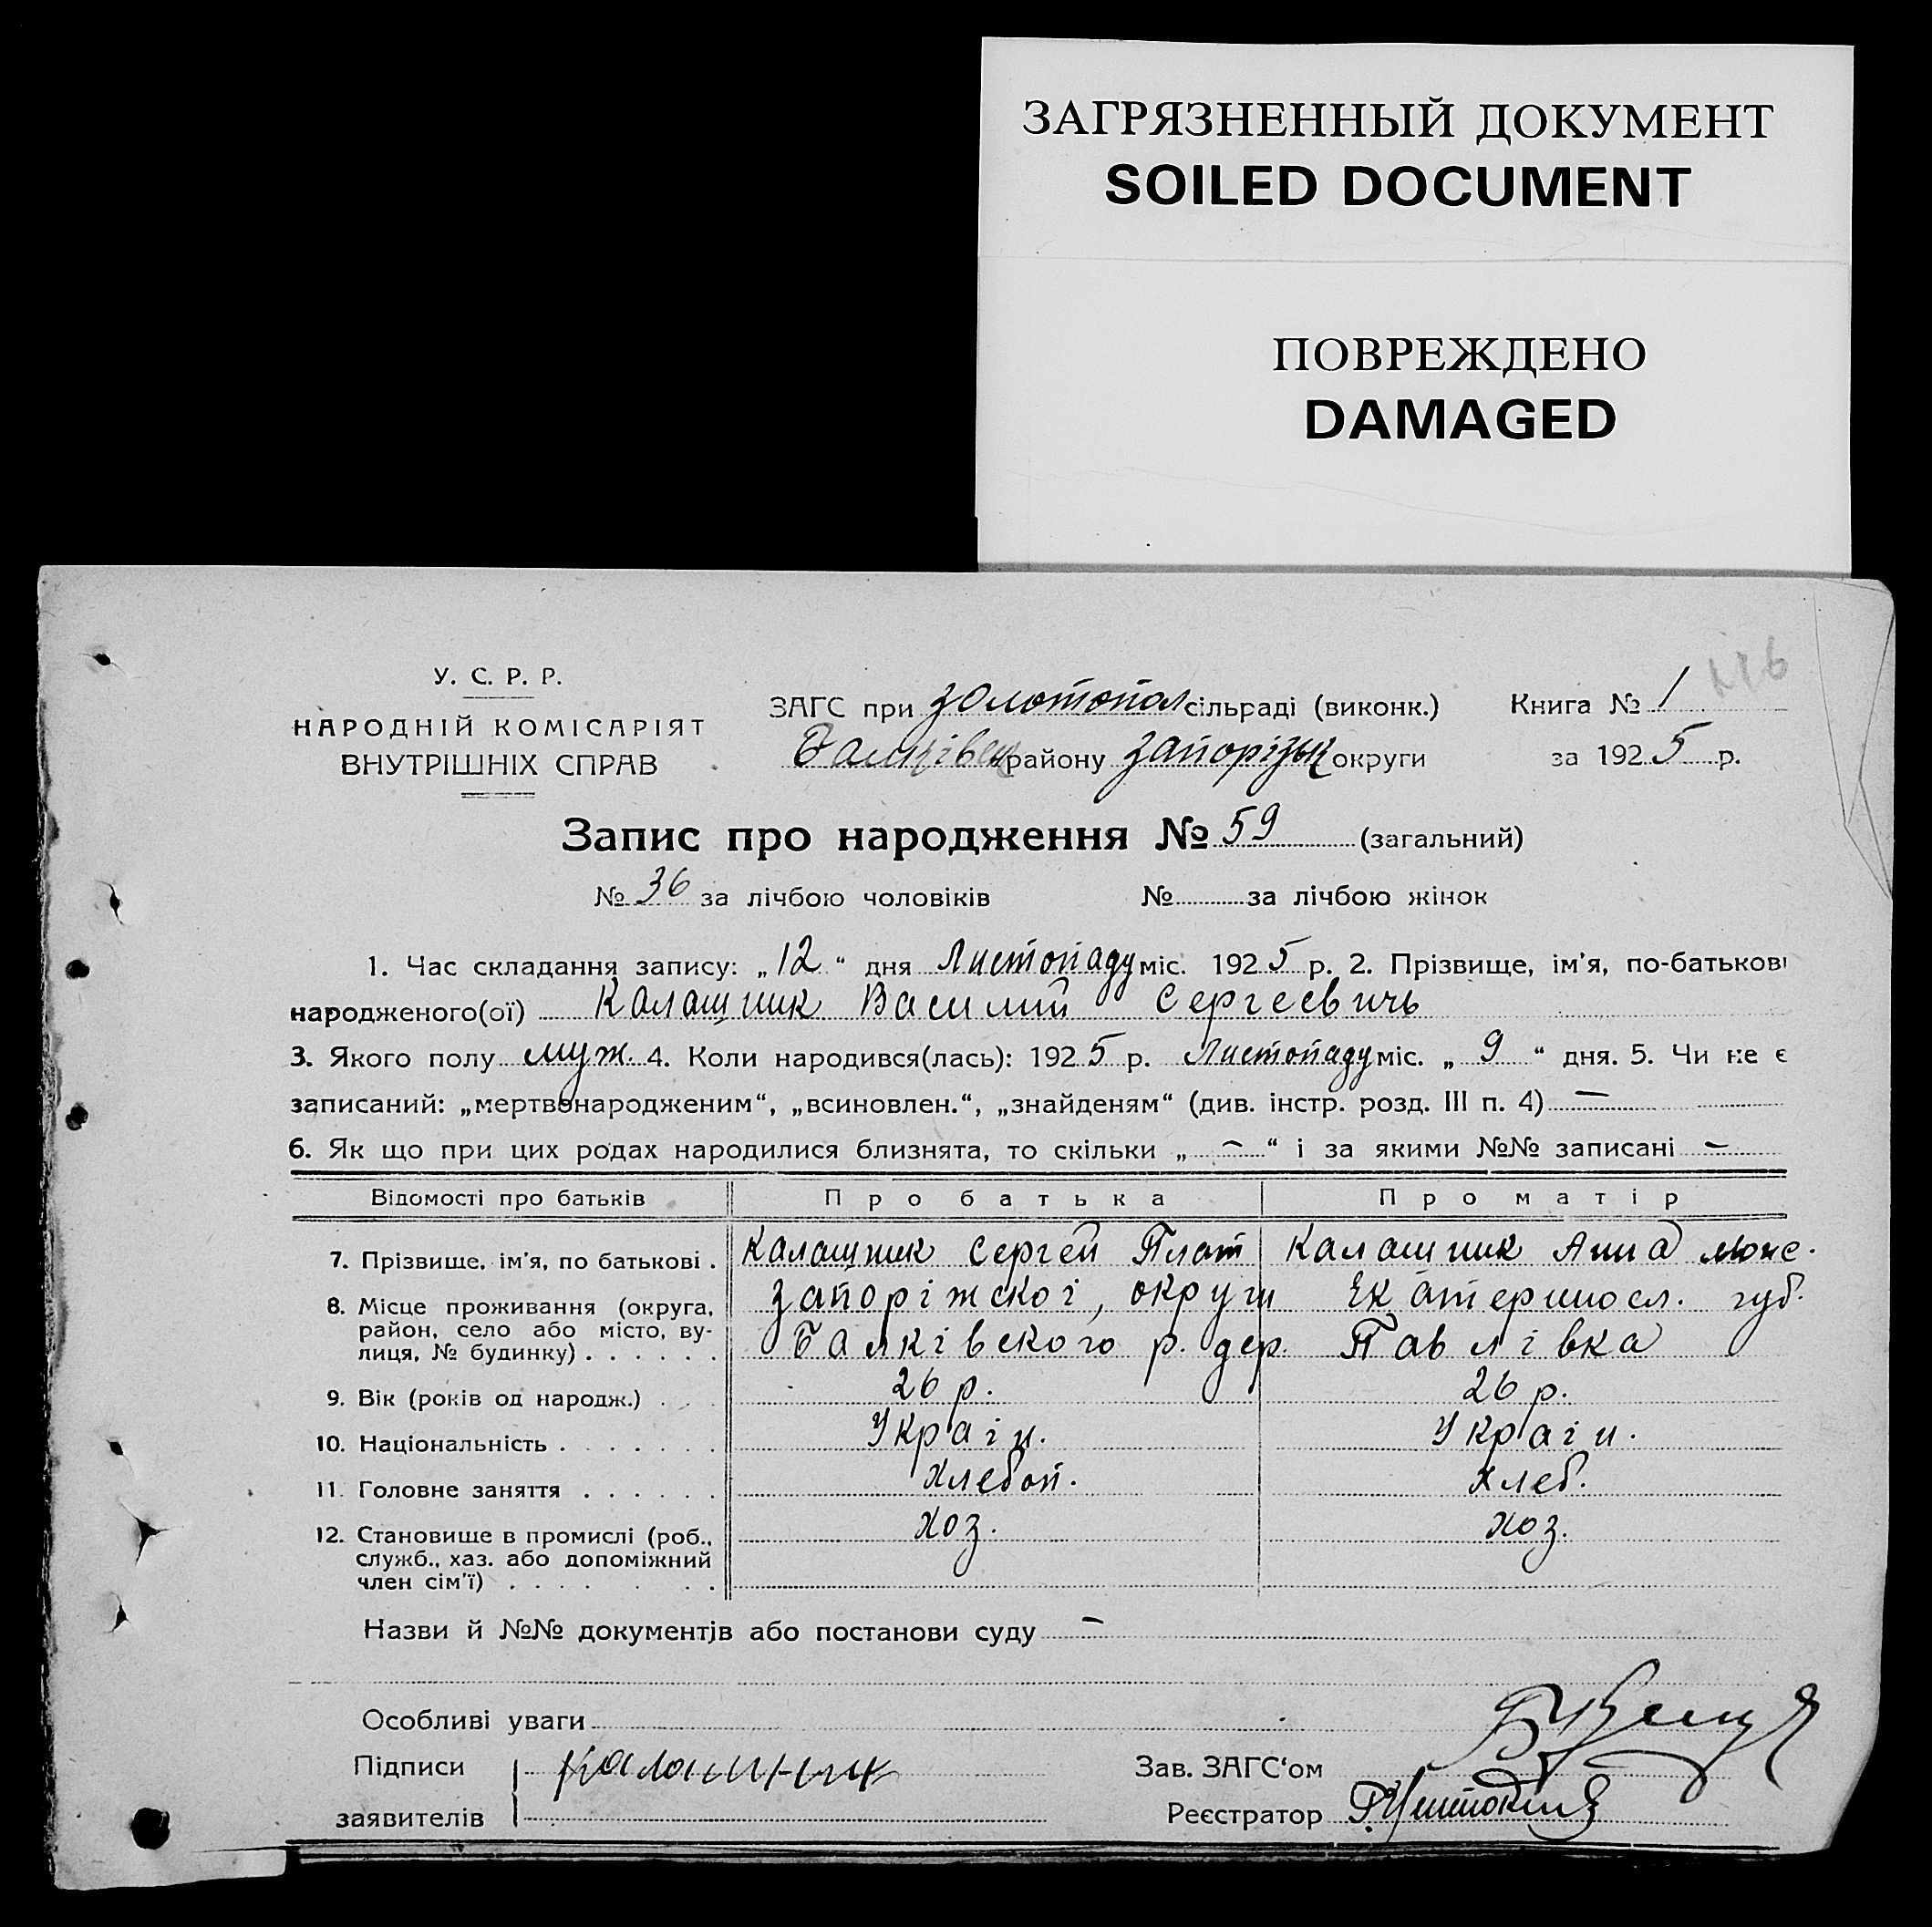 ЗАГРЯЗНЕННЫЙ ДОКУМЕНТ
SOILED DOCUMENT
ПОВРЕЖДЕНО
DAMAGED
У. С. Р. Р.
НАРОДНІЙ КОМІСАРІЯТ
ВНУТРІШНІХ СПРАВ
ЗАГС при Золотопол сільраді (виконк.) Книга № 1
району Запорізьк округи за 1925 р.
Запис про народження № 59 (загальний)
№ 36 за лічбою чоловіків № за лічбою жінок
1. Час складання запису: „12“ дня Листопаду міс. 1925 р. 2. Прізвище, ім'я, по-батькові
народженого(ої) Калашник Василий Сергеевичь
3. Якого полу муж. 4. Коли народився(лась): 1925 р. Листопаду міс. „9“ дня. 5. Чи не є
записаний: „мертвонародженим“, „всиновлен.“, „знайденям“ (див. інстр. розд. III п. 4) —
6. Як що при цих родах народилися близнята, то скільки „—“ і за якими №№ записані —
Відомості про батьків Про батька Про матір
7. Прізвище, ім'я, по батькові . Калашник Сергей Плат Калашник Анна
8. Місце проживання (округа, район, село або місто, вулиця, № будинку) . . . . . . Запоріжскоі, округи Екатериносл. губ.
Балківского р. дер. Павлівка
9. Вік (років од народж.) . . . 26 р. 26 р.
10. Національність . . . . . . . Украін. Украін.
11. Головне заняття . . . . . . Хлебоп. Хлеб.
12. Становище в промислі (роб., служб., хаз. або допоміжний член сім'ї) . . . . . . . Хоз. Хоз.
Назви й №№ документів або постанови суду —
Особливі уваги
Підписи заявителів Калашник Зав. ЗАГС'ом
Реєстратор